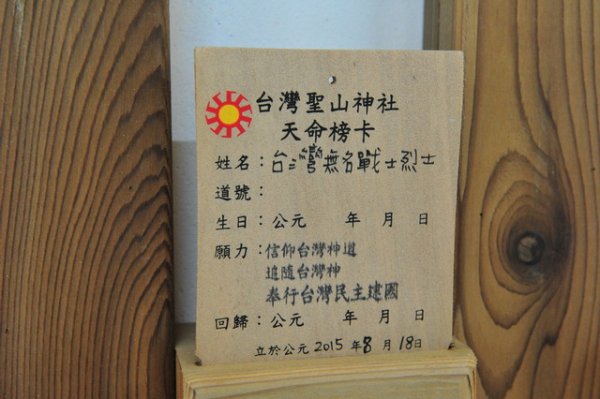 台灣聖山神社
天命榜卡
姓名：台灣無名戰士烈士
道號：
生日：公元 年 月 日
願力：信仰台灣神道
追隨台灣神
奉行台灣民主建國
回歸：公元 年 月 日
立於公元 2015 年 8 月 18 日